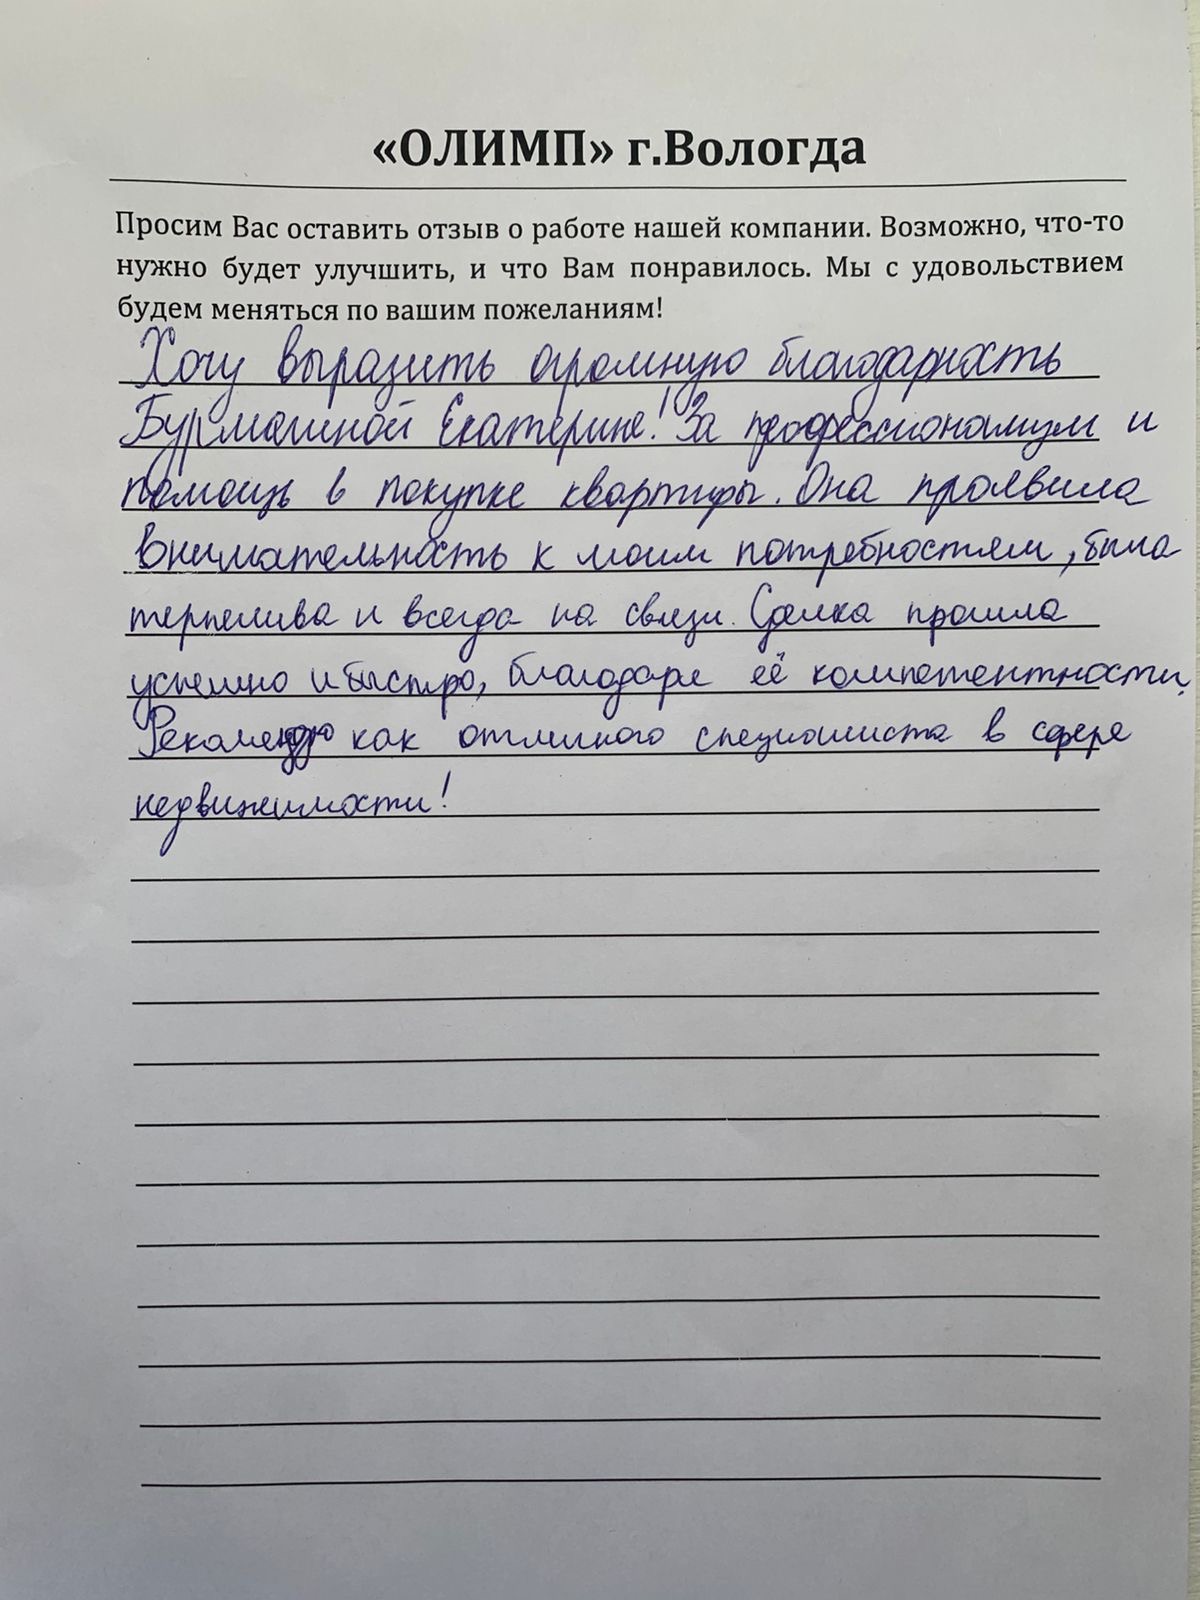 «ОЛИМП» г.Вологда
Просим Вас оставить отзыв о работе нашей компании. Возможно, что-то
нужно будет улучшить, и что Вам понравилось. Мы с удовольствием
будем меняться по вашим пожеланиям!
Хочу выразить огромную благодарность
Бурмагиной Екатерине! За профессионализм и
помощь в покупке квартиры. Она проявила
внимательность к моим потребностям, была
терпелива и всегда на связи. Сделка прошла
успешно и быстро, благодаря её компетентности.
Рекомендую как отличного специалиста в сфере
недвижимости!